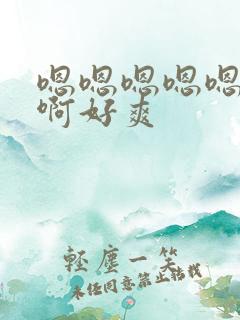 嗯嗯嗯嗯嗯
啊好爽
輕塵一笑
未经同意禁止转载